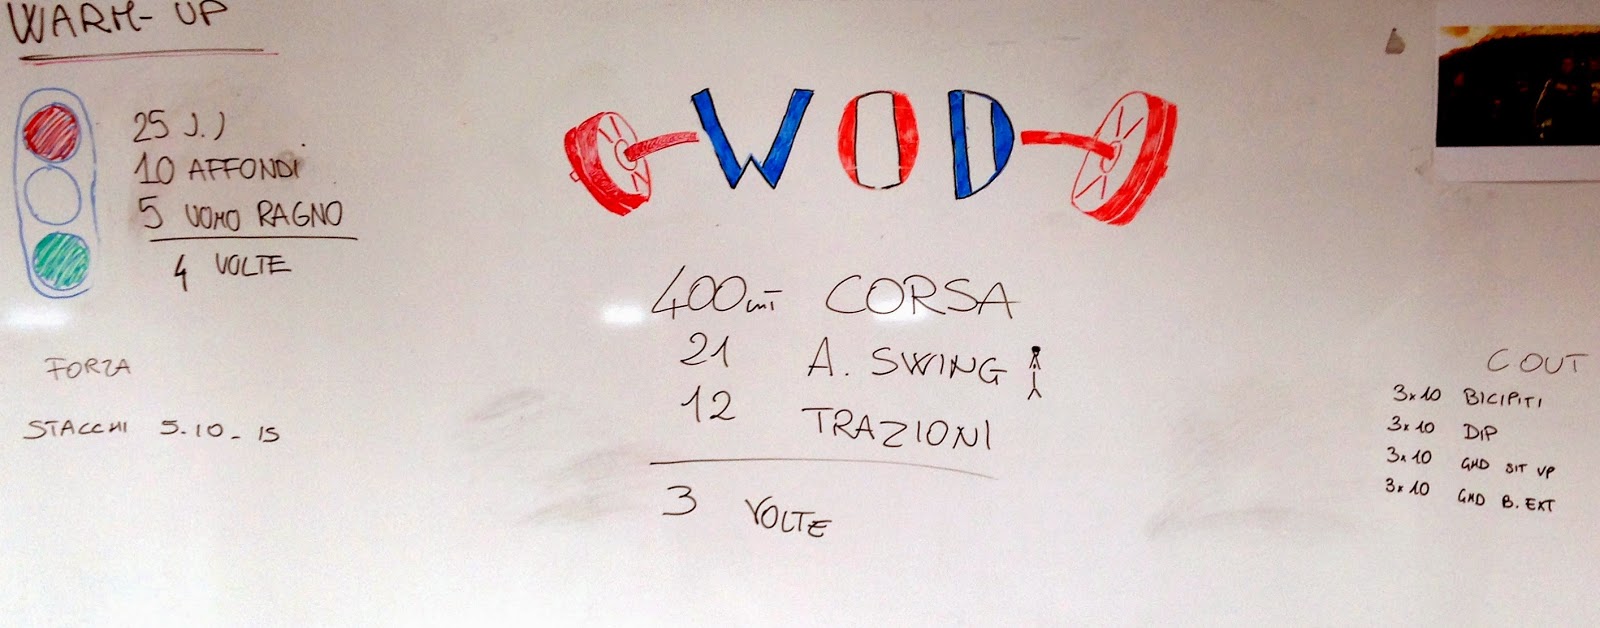 WARM-UP
25 J.J
10 AFFONDI
5 UOMO RAGNO
4 VOLTE
FORZA
STACCHI 5.10-15
WOD
400mt CORSA
21 A. SWING
12 TRAZIONI
3 VOLTE
C OUT
3x10 BICIPITI
3x10 DIP
3x10 GHD SIT UP
3x10 GHD B. EXT